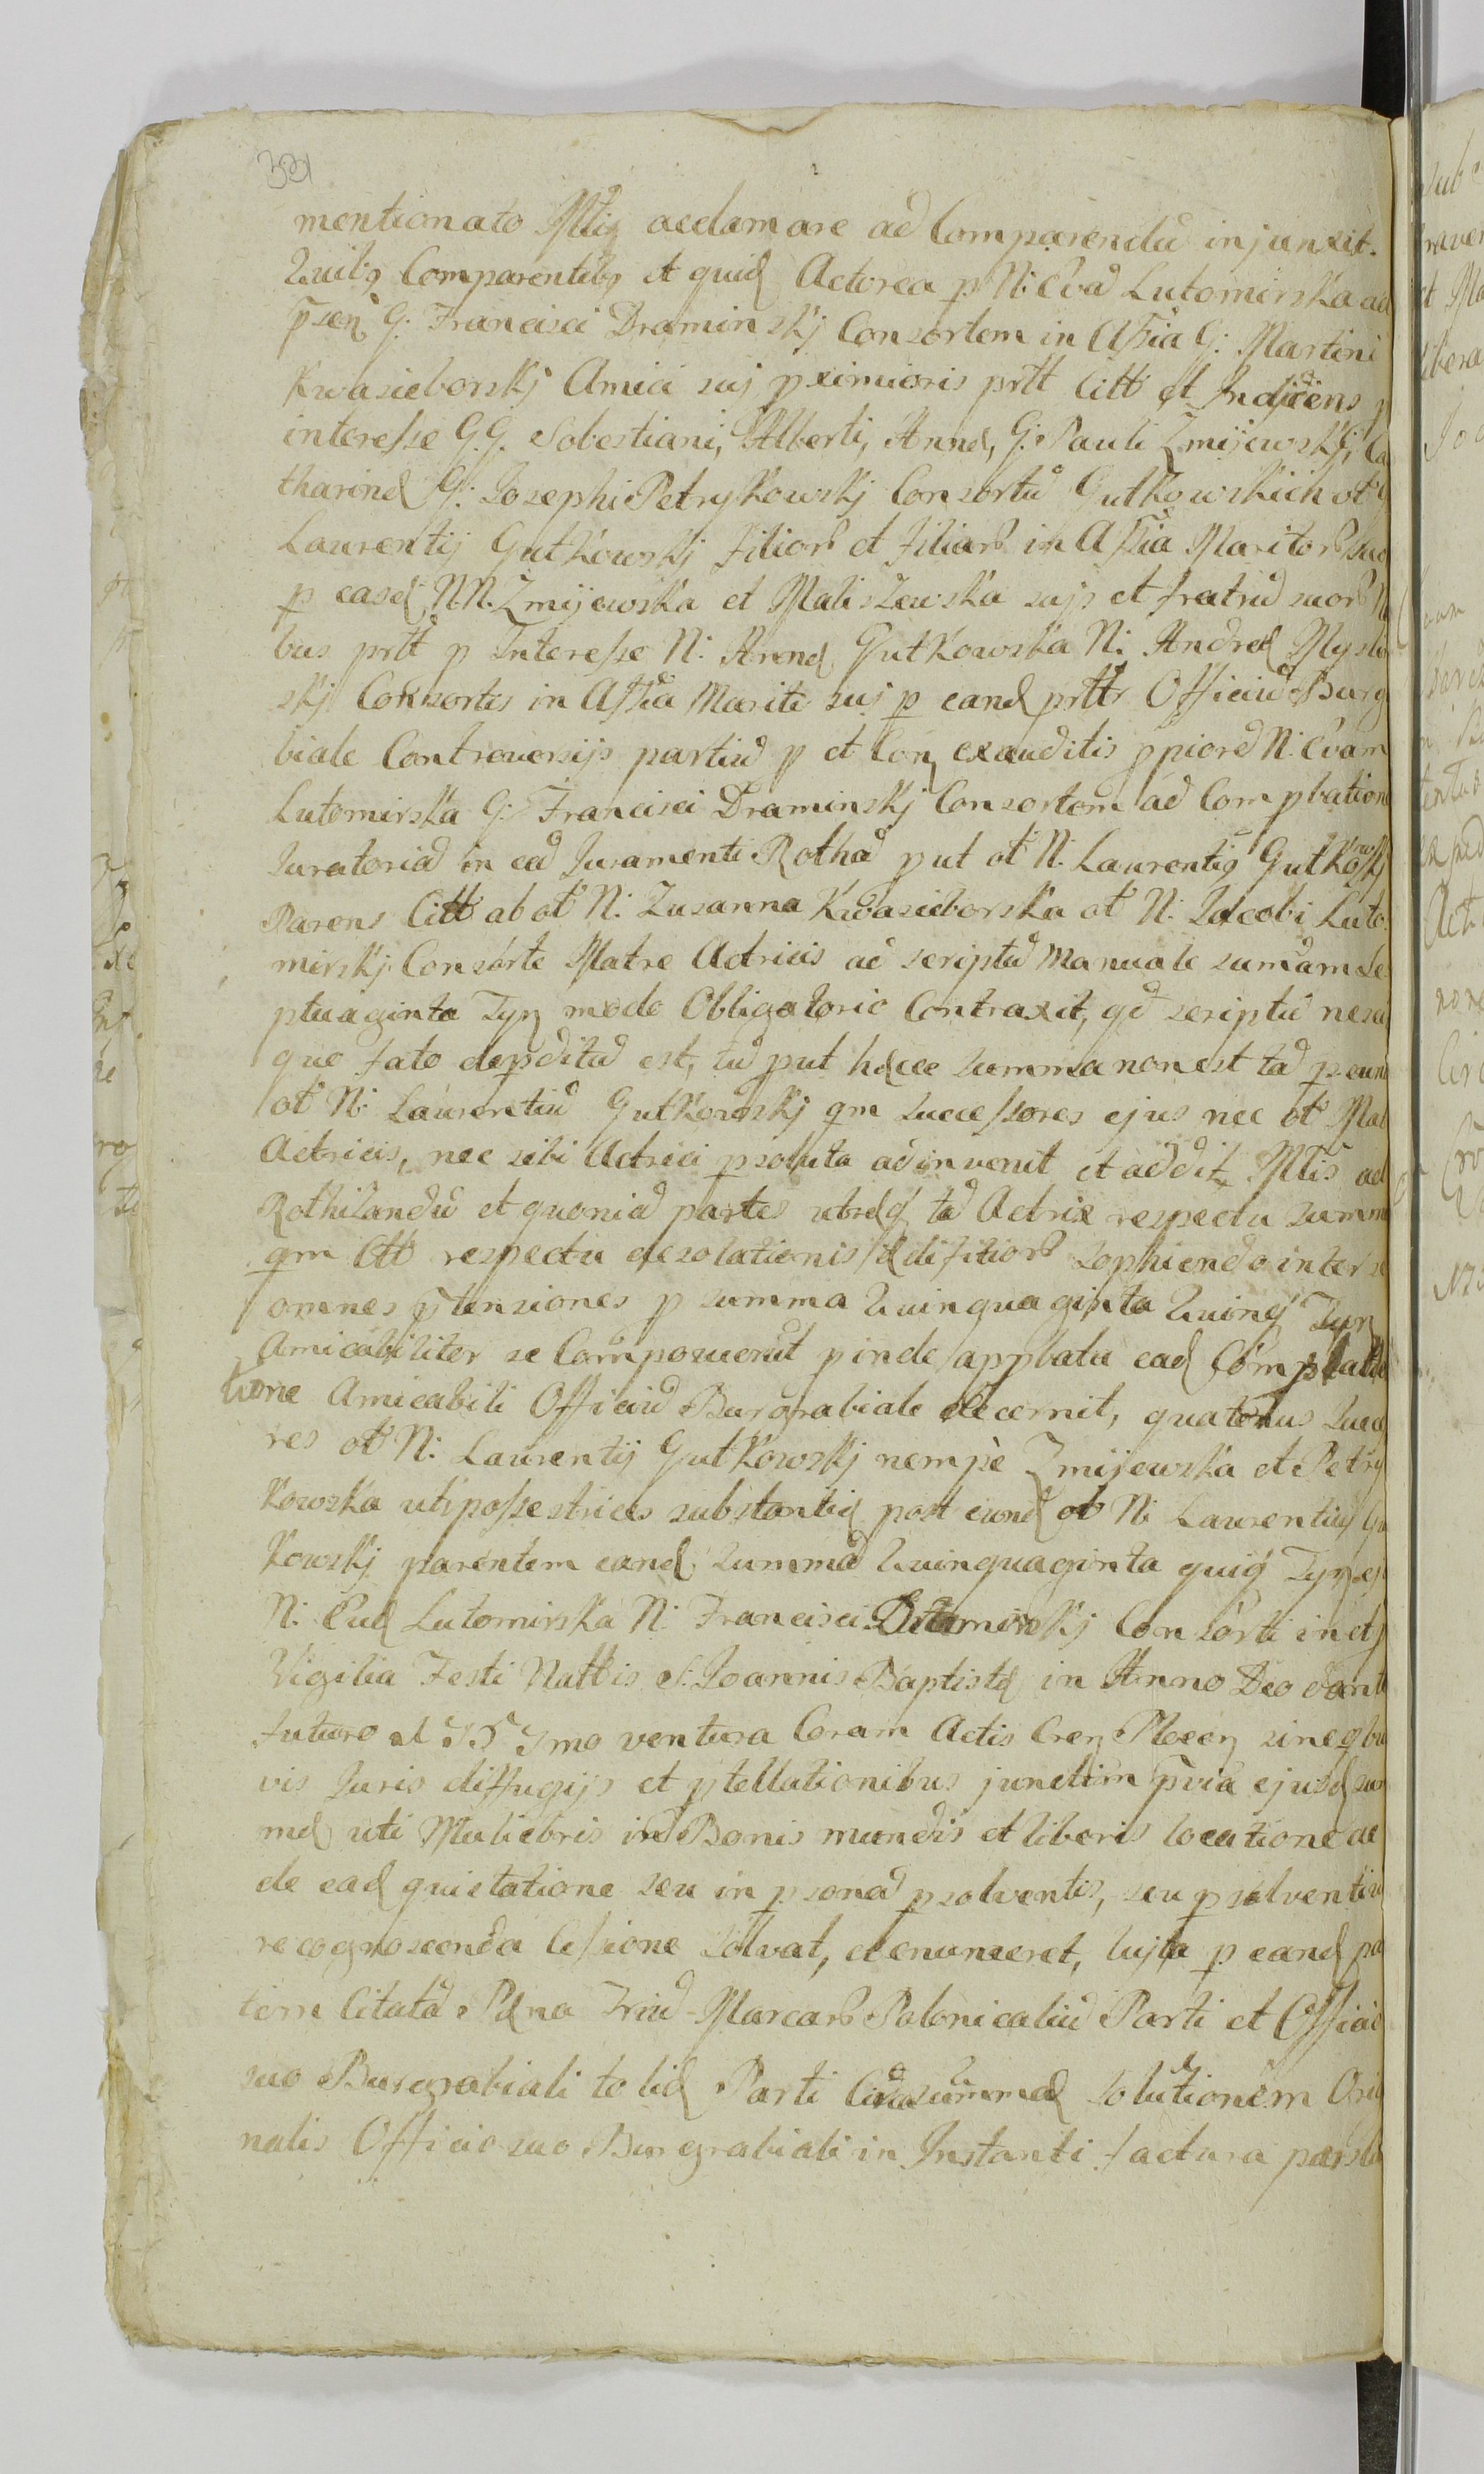 331
mentionato Mtis acclamare ad Comparendũ injunxit.
Quibq Comparentibq et quidę Actorea p N: Evã Lutomirska ad
p̃sen G: Francisci Draminskj Consortem in Assia G: Martini
Kwasieborskj Amici suj pximioris prtt Citt et Indicens p
interesse G.G. Sobestiani, Alberti, Annę, G: Pauli Zmijewskj, Ca
tharinę G: Josephi Petrykowskj Consortũ Gutkowskich ot G
Laurentij Gutkowskj Filiorȝ et Filiarȝ in Assia Maritorȝ suo
p easdę N.N. Zmijewska et Maliszewska sujs et fratrũ suorȝ
bus prtt p Interesse N: Annę Gutkowska N: Andreę Myslo
skj Consortis in Assia Mariti suj p eandę prtt Officiũ Burg
biale Controversijs partiũ p et Con exauditis ppiorẽ N: Evam
Lutomirska G: Francisci Draminskj Consortem ad Compbation
Juratoriã in eã Juramenti Rothã put ot N: Laurentiq Gutkowskj
Parens Citt ab ot N: Zusanna Kwasieborska ot N: Jacobi Luto
mirskj Consorte Matre Actricis ad scriptũ Manuale sumãm Se
ptuaginta Tyn modo Obligatorio Contraxit, qd scriptũ nesci
quo fato depditũ est, tũ put hęcce summa non est tã p eun
ot N: Laurentiũ Gutkowskj qm successores ejus nec ot Mat
Actricis, nec sibi Actrici psoluta adinvenit et addit Mtis ad
Rothizandũ et quoniã partes utręq tã Actrix respectu summ
qm Citt respectu desolationis ędifitiorȝ sophiendo inter s
omnes ptensiones p summa Quinquaginta Quinq Tyn
Amicabiliter se Composuerũt pinde appbata eadę Compbatã
tione Amicabili Officiũ Burgrabiale decernit, quatenus Succe
res ot N: Laurentij Gutkowskj nempè Zmijewska et Petry
kowska uti possestrices substantię post eundę ot N: Laurentiũ Gu
kowskj parentem eandę Summã Quinquaginta quinq Tyn
N: Evę Lutomirska N: Francisci Draminskj Consorti in et p
Vigilia Festi Nattis S: Joannis Baptistę in Anno Deo dant
futuro ventura Coram Actis Cren Plocen sine qbu
vis Juris diffugijs et ptellationibus junctim p̃via ejusdę sum
mę uti Muliebris in Bonis mundis et liberis locatione ac
de eadę quietatione seu in psonã psolventis, seu psolventiũ
recognoscenda Cessione solvat, et enumeret, Cujta p eandę pa
tem Citatã Pęna Triũ Marcarȝ Polonicaliũ Parti et Officio
suo Burgrabiali tolię Parti Circa summę solutionem Ori
nalis Officio suo Burgrabiali in Instanti factura persolu